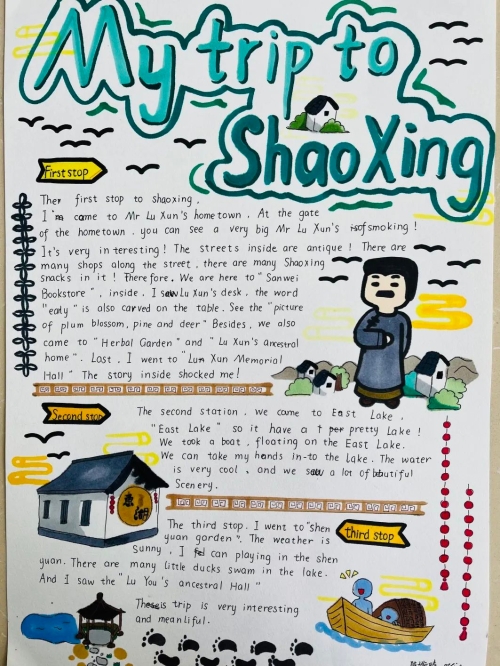 My trip to
ShaoXing
First stop
The first stop to shaoxing .
I 'm came to Mr Lu Xun's home town . At the gate
of the hometown . you can see a very big Mr Lu Xun's is of smoking !
It's very in teresting ! The streets inside are antique ! There are
many shops along the street , there are many Shaoxing
snacks in it ! There fore . We are here to " Sanwei
Bookstore " , inside . I saw Lu Xun's desk , the word
"early" is also carved on the table . See the "picture
of plum blossom, pine and deer " Besides , we also
came to " Herbal Garden " and " Lu Xun's ancestral
home " . Last , I went to "Lu Xun Memorial
Hall " The story inside shocked me !
Second stop
The second station . we came to East Lake .
"East Lake " so it have a pretty Lake !
We took a boat , floating on the East Lake .
We can take my hands in-to the Lake . The water
is very cool , and we saw a lot of beautiful
Scenery .
東湖
third stop
The third stop . I went to "shen
yuan garden " . The weather is
sunny . I can playing in the shen
yuan. There are many little ducks swam in the lake .
And I saw the " Lu You 's ancestral Hall "
This trip is very interesting
and meanliful .